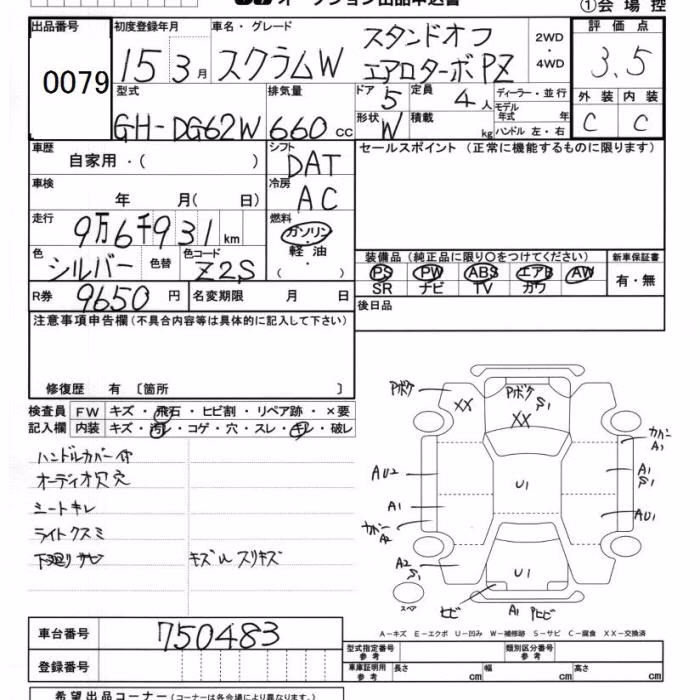 オークション出品申込書
①会場控
出品番号 0079
初度登録年月 15 3月
車名・グレード スクラムW スタンドオフ エアロターボPZ
2WD・4WD
評価点 3.5
型式 GH-DG62W
排気量 660 cc
ドア 5
定員 4人
ディーラー・並行
形状 W
積載 kg
モデル年式 年
ハンドル 左・右
外装 C
内装 C
車歴 自家用・( )
シフト DAT
セールスポイント (正常に機能するものに限ります)
車検 年 月( 日)
冷房 AC
走行 9万6千931km
燃料 ガソリン・軽油・( )
色 シルバー 色替
色コード Z2S
装備品 (純正品に限り○をつけてください)
新車保証書
PS PW ABS エアB AW
有・無
SR ナビ TV カワ
R券 9650円
名変期限 月 日
後日品
注意事項申告欄 (不具合内容等は具体的に記入して下さい)
修復歴 有 〔箇所 〕
検査員 FW キズ・飛石・ヒビ割・リペア跡・×要
記入欄 内装 キズ・汚レ・コゲ・穴・スレ・キレ・破レ
ハンドルカバー付
オーディオ穴穴
シートキレ
ライトクスミ
下廻りサビ キズ スリキズ
Pボケ
XX
Pボケ
S1
XX
カバーA1
AU2
U1
A1
S1
A1
AU1
カバーA2
A2
S1
U1
スペア
ヒビ
A1
Pヒビ
A-キズ E-エクボ U-凹み W-補修跡 S-サビ C-腐食 XX-交換済
車台番号 750483
型式指定番号 参考
類別区分番号 参考
登録番号
車庫証明用 参考 長さ cm 幅 cm 高さ cm
希望出品コーナー (コーナーは各会場により異なります。)